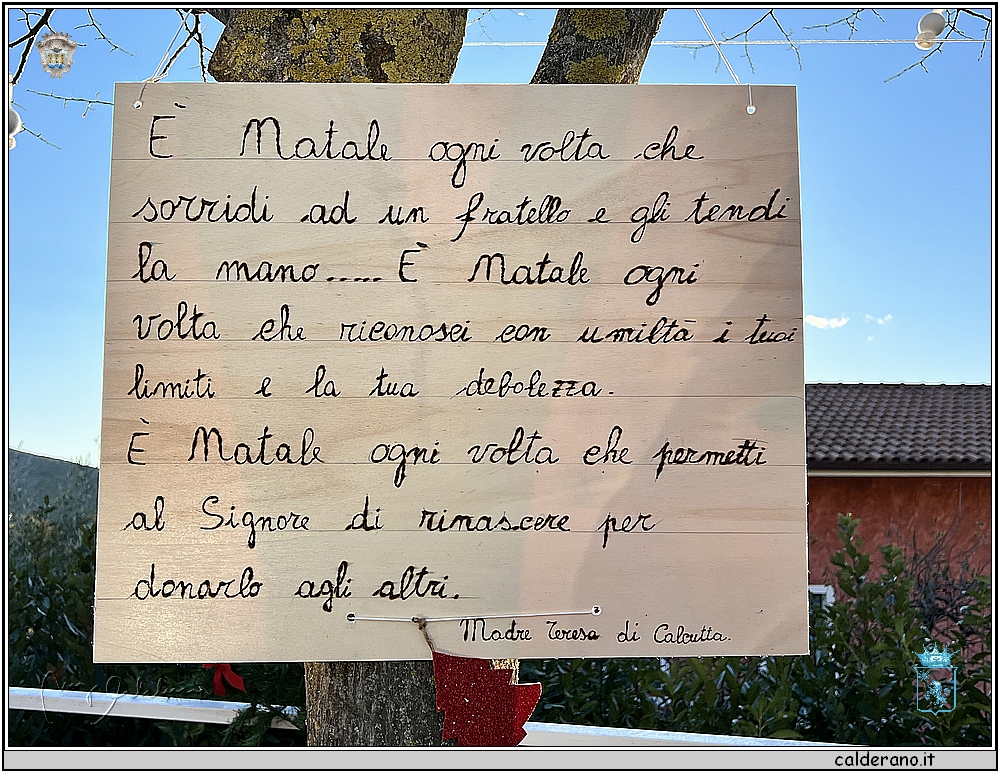 È Natale ogni volta che
sorridi ad un fratello e gli tendi
la mano..... È Natale ogni
volta che riconosci con umiltà i tuoi
limiti e la tua debolezza.
È Natale ogni volta che permetti
al Signore di rinascere per
donarlo agli altri.
Madre Teresa di Calcutta.
calderano.it